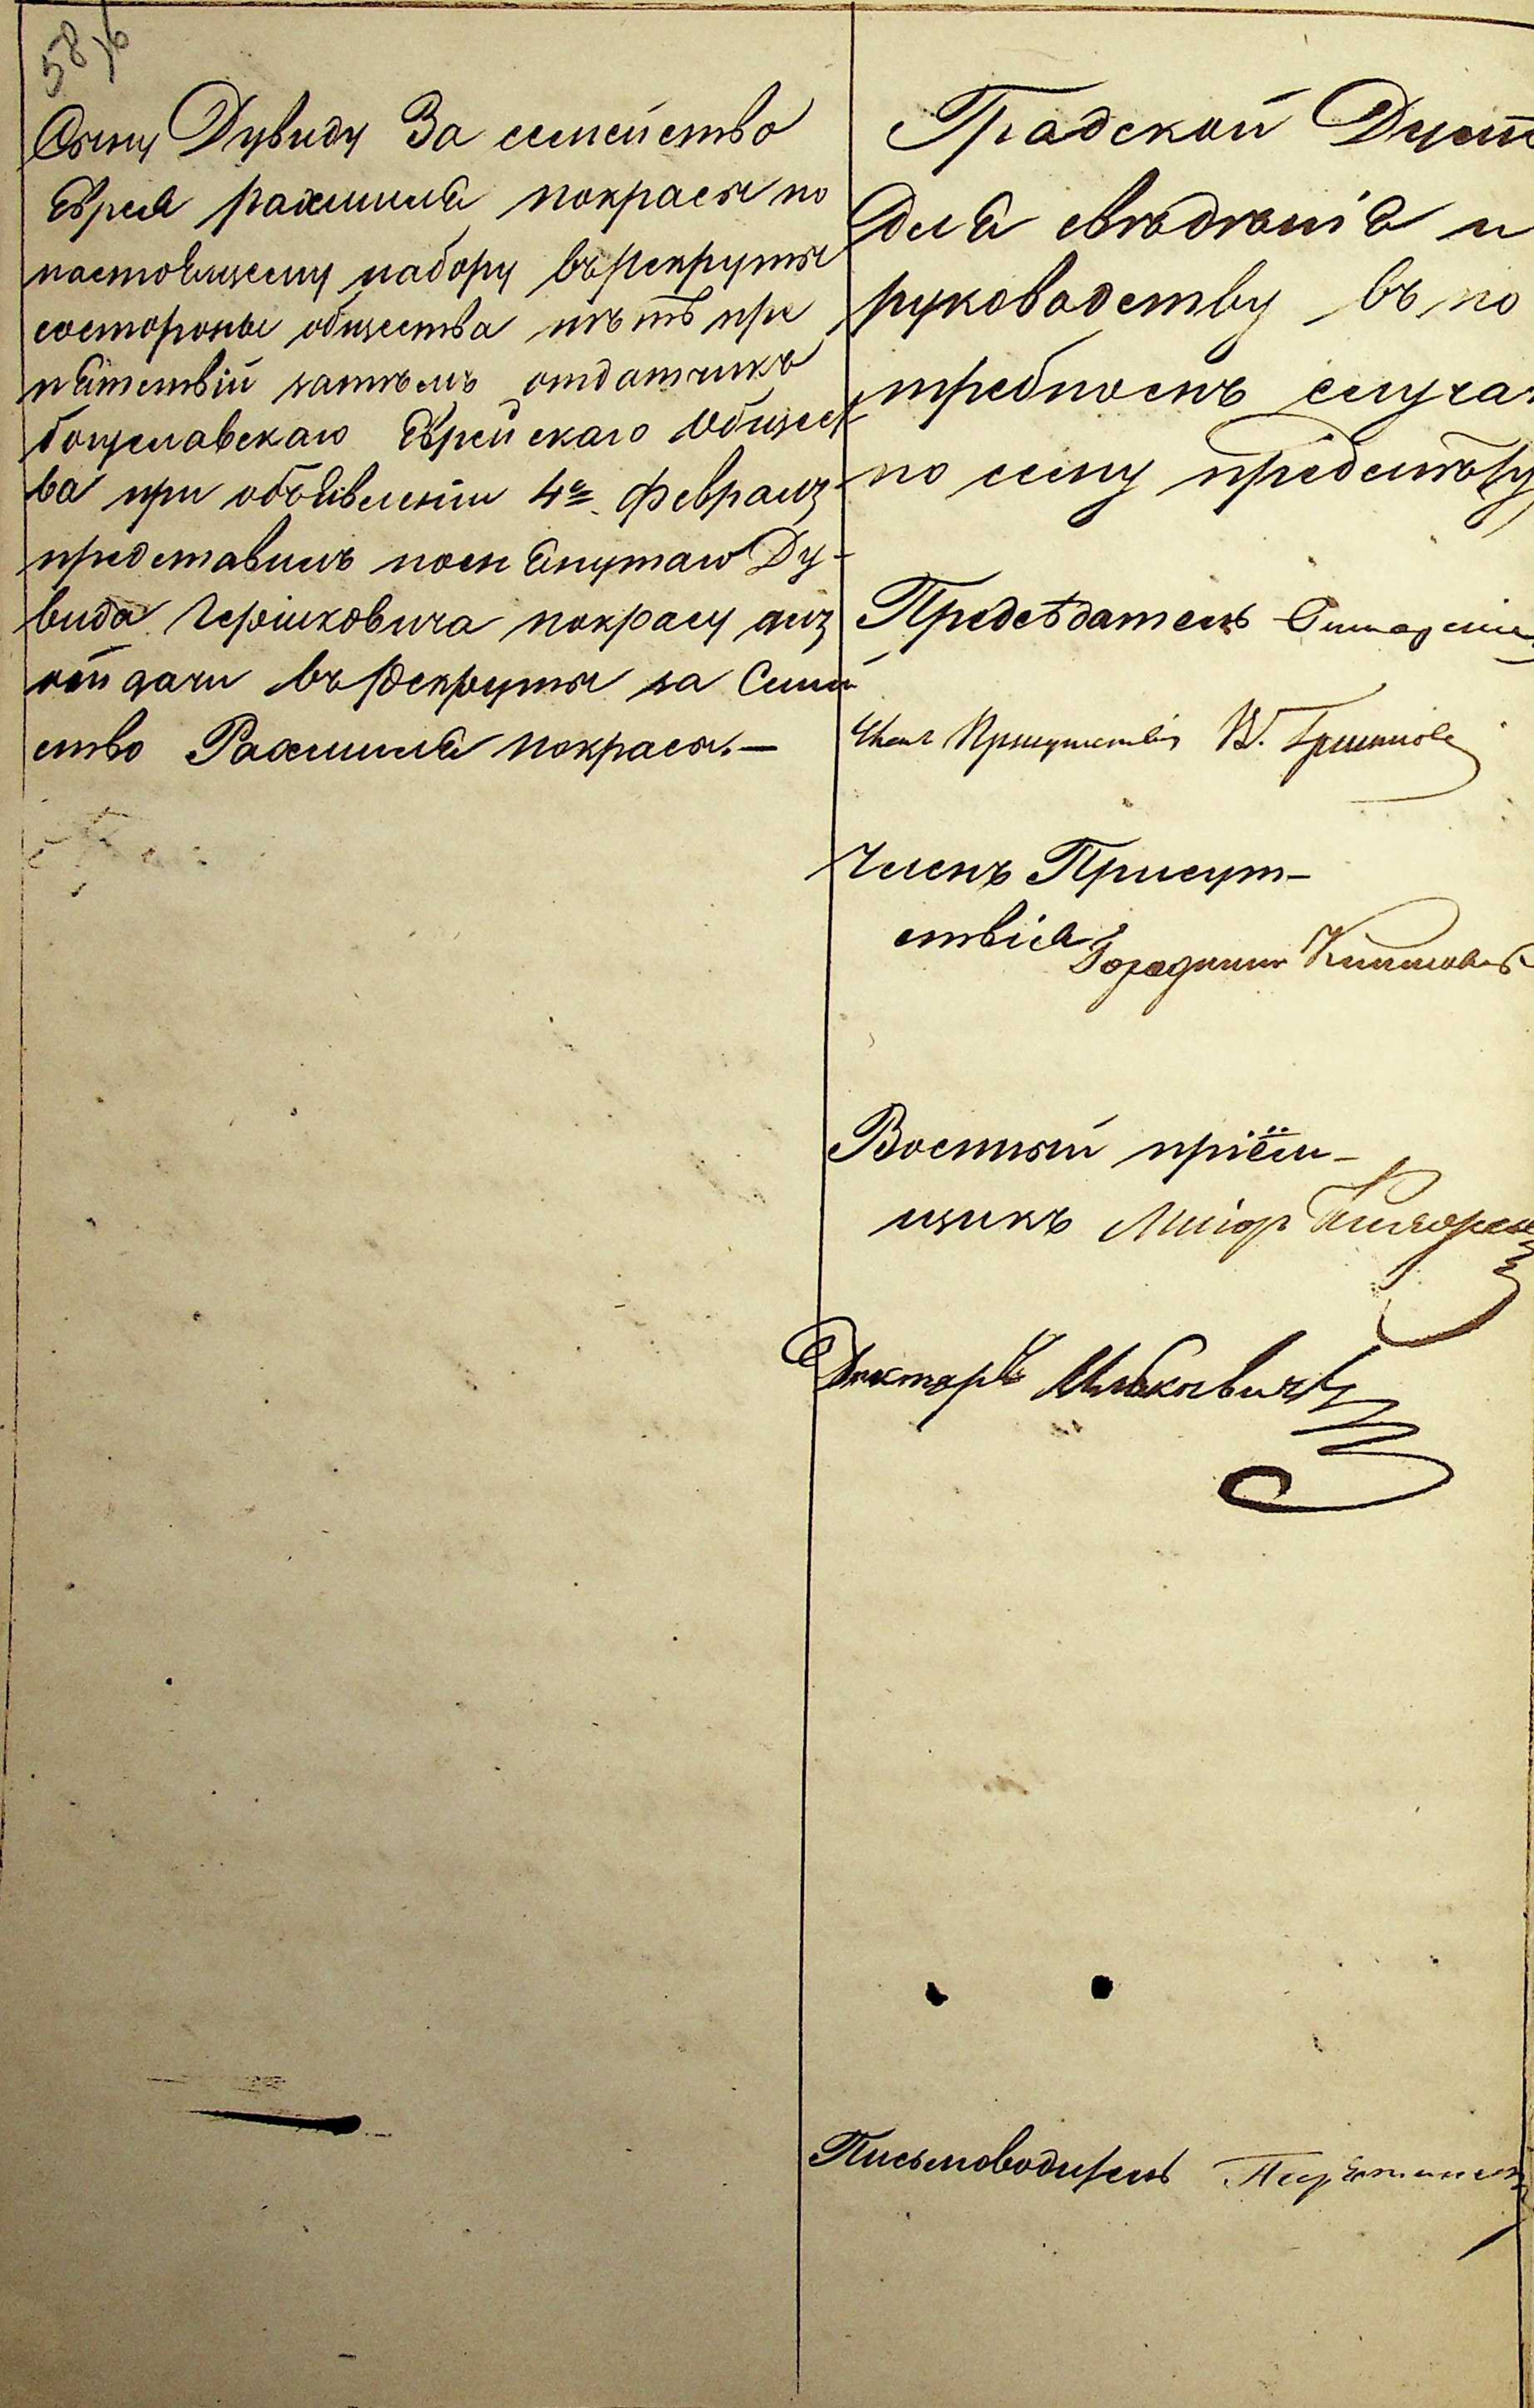 58 об
Сыну Дувиду За семейство
Еврея Рахмиля покрасы по
настоящему набору въ рекруты
состороны общества нѣтъ пре
пятствій затѣмъ отдатчикъ
богуславскаго Еврейскаго общест
ва при объявленіи 4го февраля
представилъ помянутаго Ду-
вида Гершковича покрасу для
отдачи въ рекруты за Семей
ство Рахмиля покрасы.—
Градской Думѣ
для свѣдѣнія и
руководству въ по
требномъ случаѣ
по сему предмѣту
Предсѣдатель
Членъ Присутствія
Членъ Присут-
ствія Городничій
Военный пріём-
щикъ Маіоръ
Докторъ
Письмоводитель